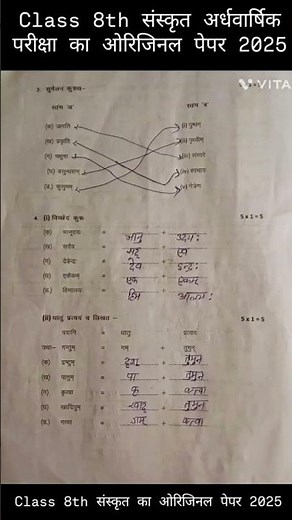 Class 8th संस्कृत अर्धवार्षिक
परीक्षा का ओरिजिनल पेपर 2025
VITA
3. सुमेलन कुरुत–
स्तम्भ 'अ' स्तम्भ 'ब'
(क) जागर्ति (i) पुष्पम्
(ख) प्रकृति (ii) पृथ्वीम्
(ग) (iii) संसारे
(घ) वसुन्धराम् (iv) स्वभावः
(ङ) कुसुमम् (v) नेत्रेण
4. (i) विच्छेद कुरु 5x1=5
(क) भानूदयः = भानु + उदयः
(ख) = + एव
(ग) देवेन्द्रः = देव + इन्द्रः
(घ) एकैकम् = एक + एकम्
(ङ) हिमालयः = हिम + आलयः
(ii) धातु प्रत्ययं च लिखत – 5x1=5
पदानि = धातु प्रत्ययः
यथा– गन्तुम् = गम् तुमुन्
(क) = दृश् + तुमुन
(ख) पातुम् = पा + तुमुन
(ग) कृत्वा = कृ + क्त्वा
(घ) खादितुम् = खाद् + तुमुन
(ङ) गत्वा = गम् + क्त्वा
Class 8th संस्कृत का ओरिजिनल पेपर 2025